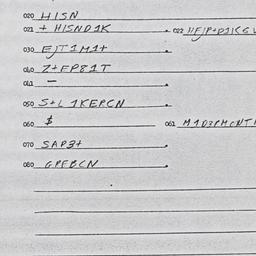 020 HISN
021 + HISND1K . 022 HFJP+D1KS
030 EJT1M1+ .
040 Z+FP81T
041 - .
050 S+L1KEPCN .
060 $ 061 M1D3PMCNT
070 SAP3+ .
080 GPFBCN .